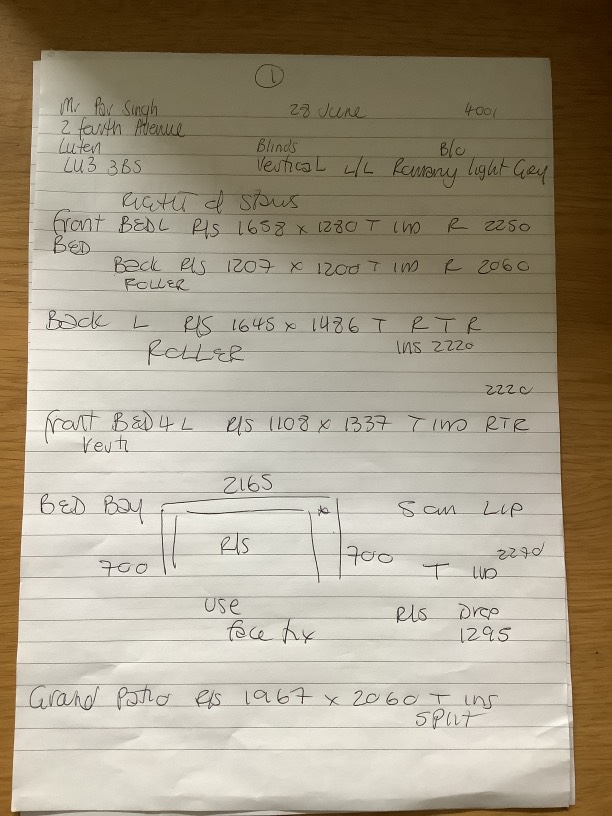 1
Mr Par Singh 28 June 4001
2 fourth Avenue
Luten Blinds B/c
LU3 3BS Vertical L/L light Grey
front BED L R/S 1658 x 1280 T IND R 2250
BED
Back R/S 1207 x 1200 T IND R 2060
ROLLER
Back L R/S 1645 x 1486 T R T R
ROLLER Ins 2220
2220
front BED 4 L R/S 1108 x 1337 T IND RTR
Verti
2165
BED BAY 5 cm LIP
R/S
700 700 T IND 2270
USE R/S Drop
face fix 1295
Grand Patio R/S 1967 x 2060 T ins
SPLIT